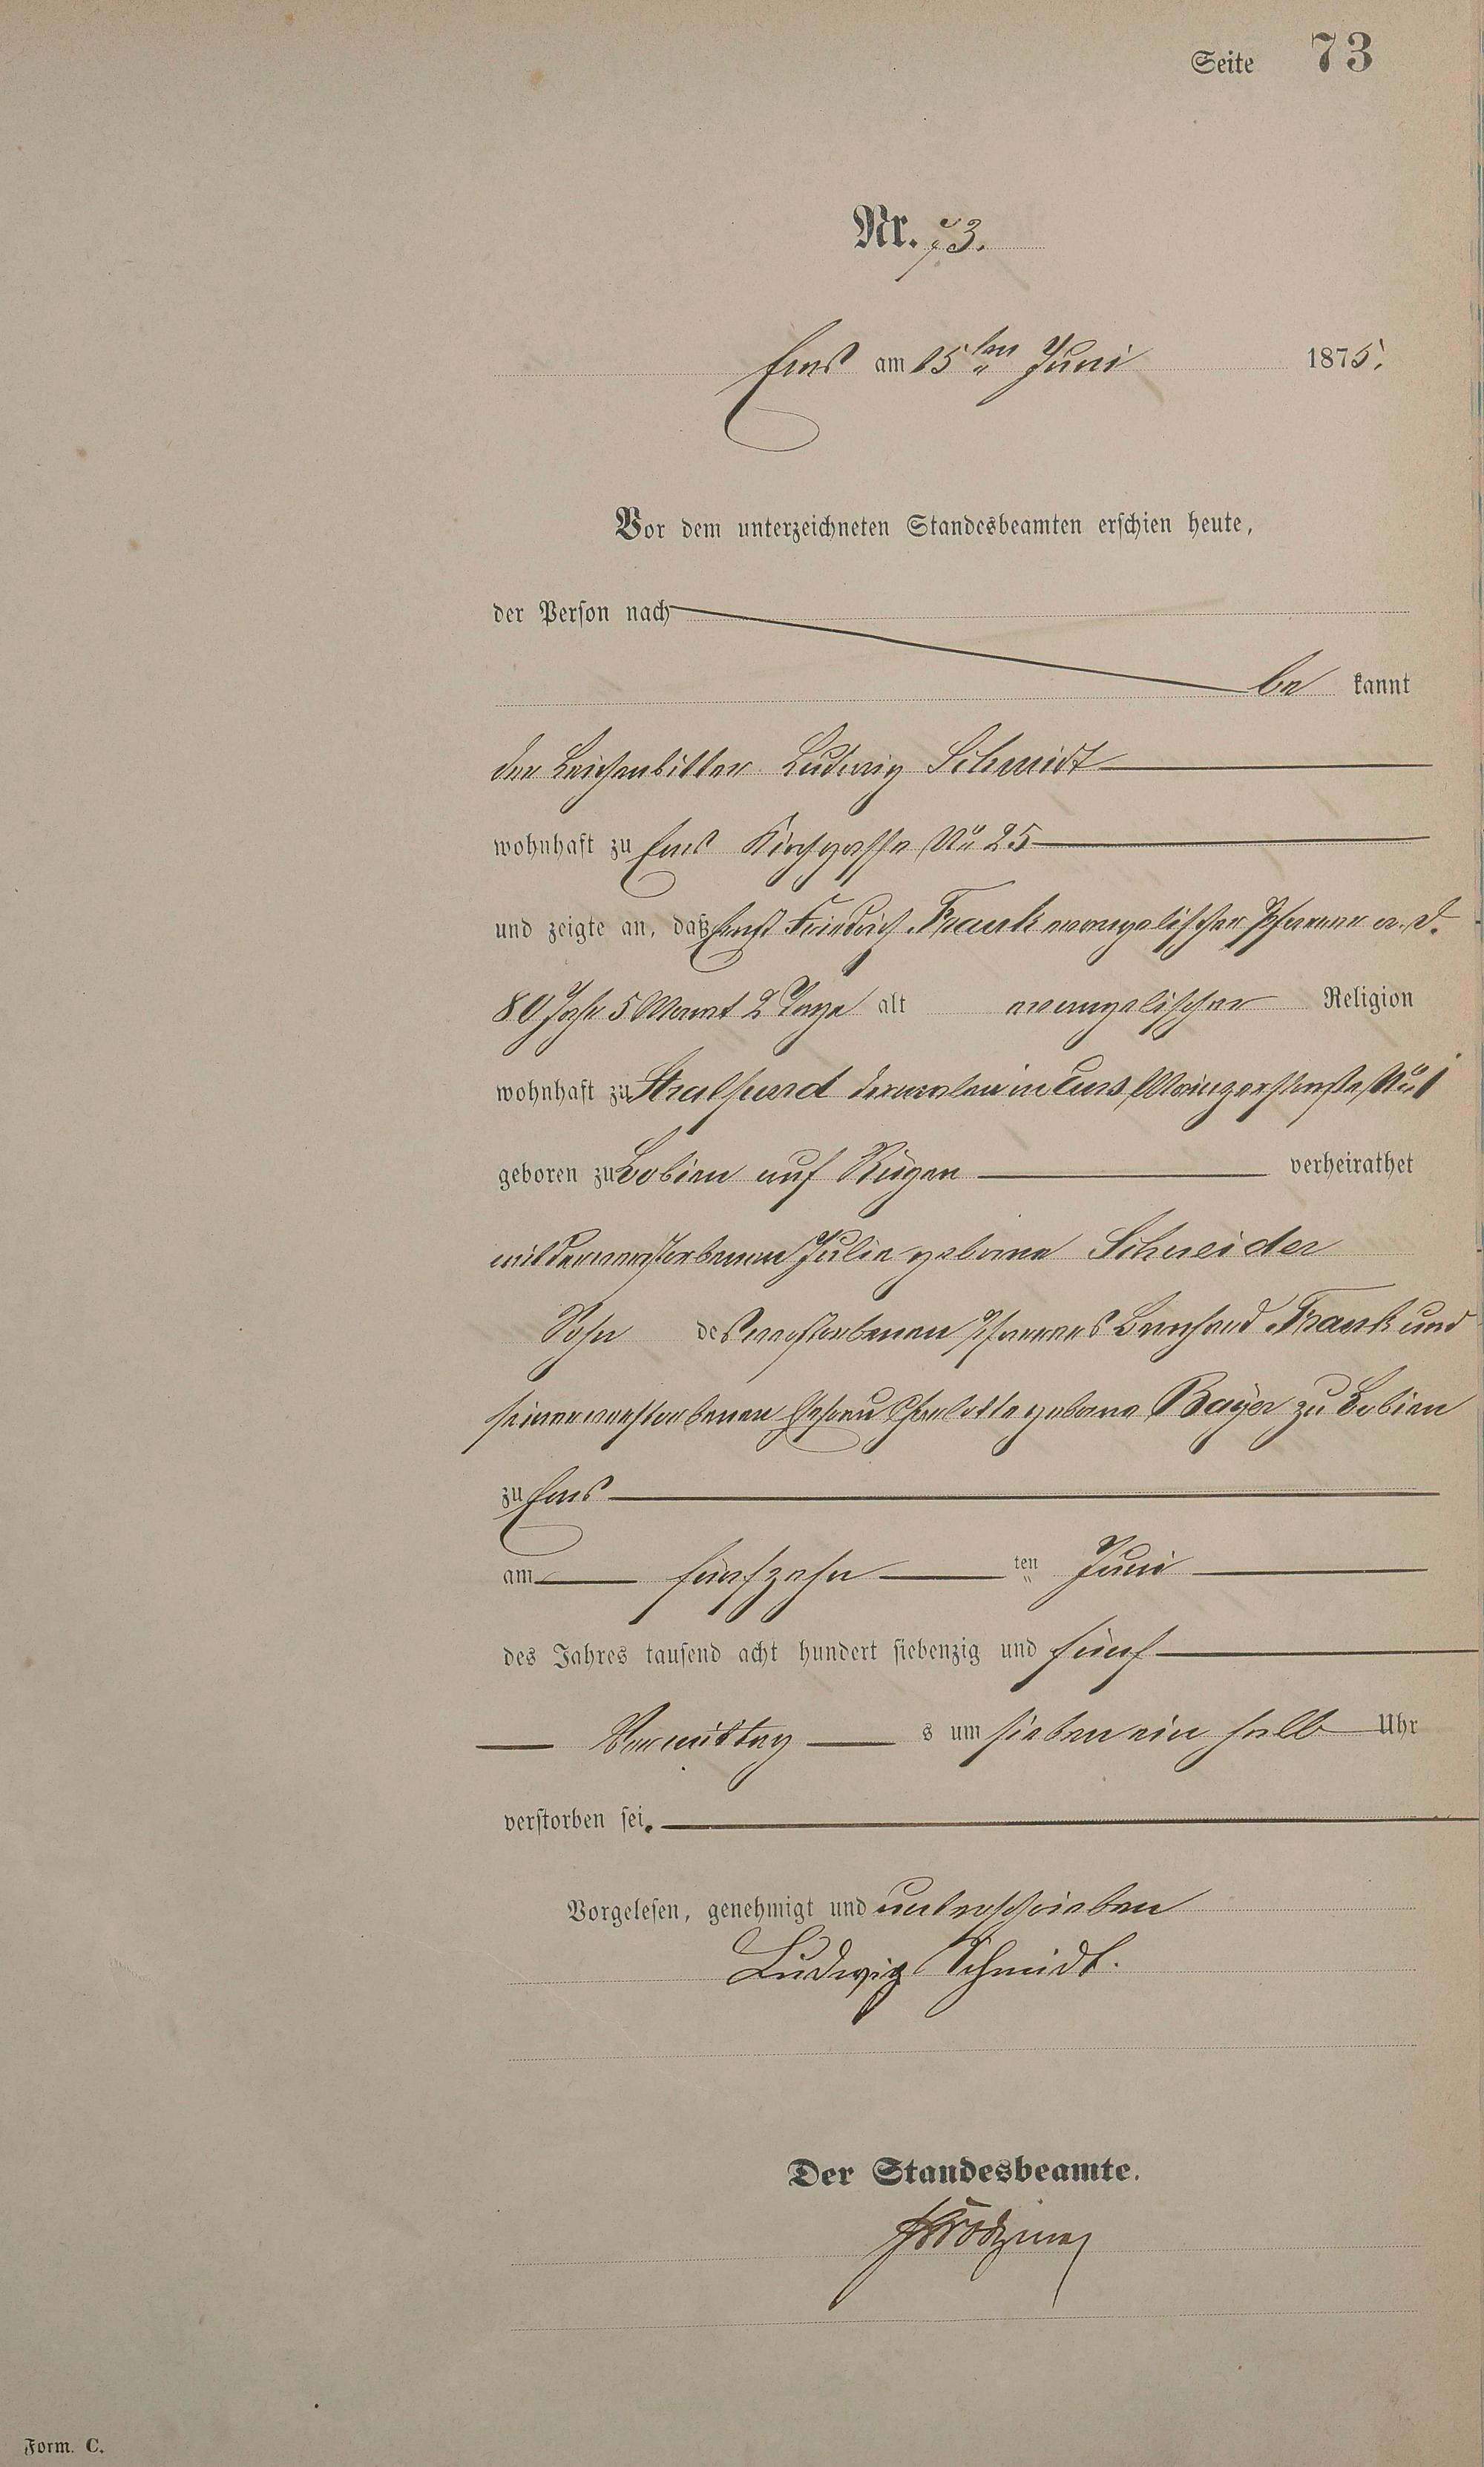 Seite 73
Nr. 73.
Ems am 15ten Juni 1875.
Vor dem unterzeichneten Standesbeamten erschien heute,
der Person nach
be kannt
der Leichenbitter Ludwig Schmidt
wohnhaft zu Ems Kirchgasse No 25
und zeigte an, daß Ernst Friedrich Frank evangelischer Pfarrer a. D.
80 Jahr 5 Monat 2 Tage alt evangelischer Religion
wohnhaft zu Stralsund dermalen in Ems, Mainzerstraße No 1
geboren zu Bobien auf Rügen verheirathet
mit der verstorbenen Julie geborne Schneider
Sohn des verstorbenen Pfarrers Bernhard Frank und
seiner verstorbenen Ehefrau Charlotte geborne Bayer zu Bobien
zu Ems
am fünfzehn ten Juni
des Jahres tausend acht hundert siebenzig und fünf
Vormittag s um sieben ein halb Uhr
verstorben sei.
Vorgelesen, genehmigt und unterschrieben
Ludwig Schmidt.
Der Standesbeamte.
Form. C.